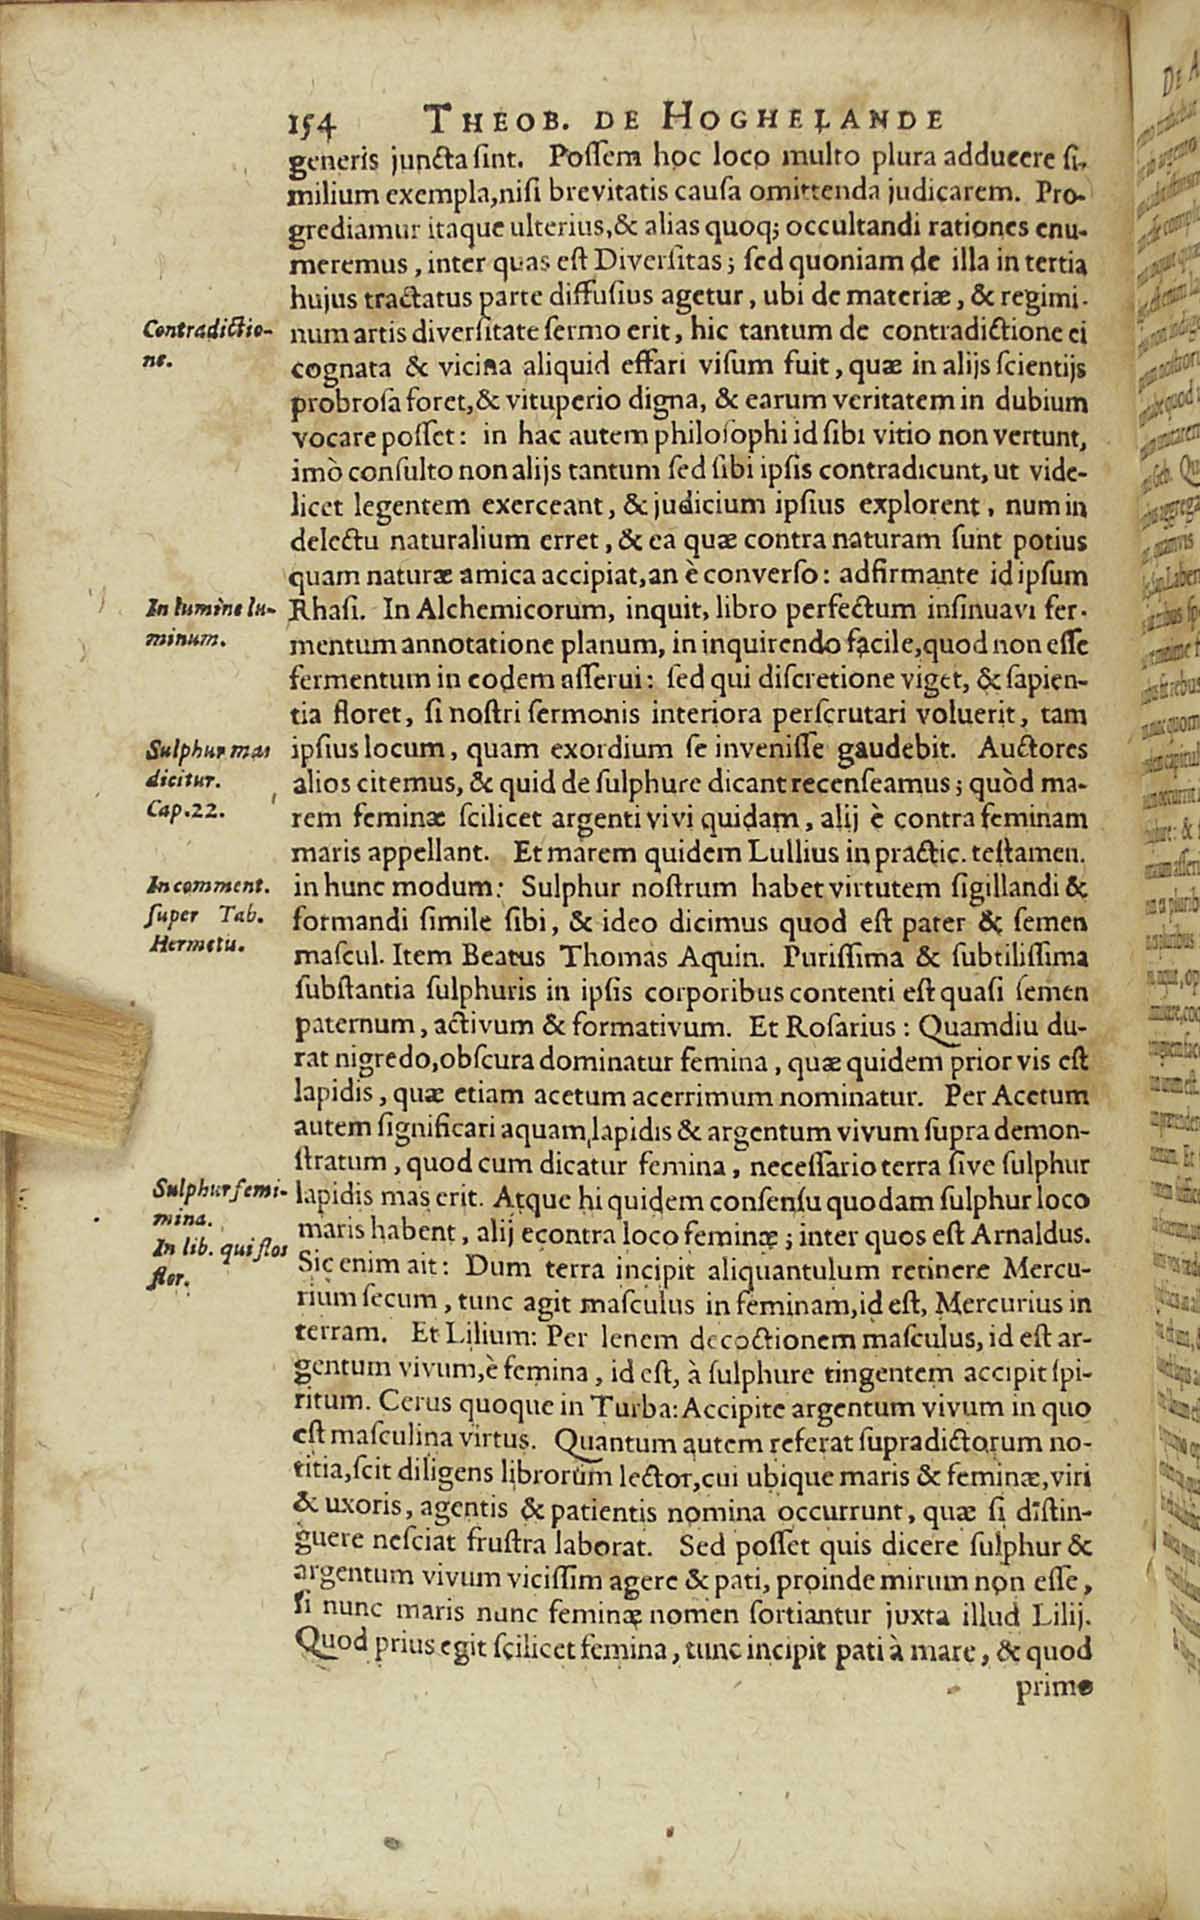 154 THEOB. DE HOGHELANDE
generis juncta sint. Possem hoc loco multo plura adducere si-
milium exempla, nisi brevitatis causa omittenda judicarem. Pro-
grediamur itaque ulterius, & alias quoq; occultandi rationes enu-
meremus, inter quas est Diversitas; sed quoniam de illa in tertia
hujus tractatus parte diffusius agetur, ubi de materiæ, & regimi-
Contradictio-
ne.
num artis diversitate sermo erit, hic tantum de contradictione ei
cognata & vicina aliquid effari visum fuit, quæ in alijs scientijs
probrosa foret, & vituperio digna, & earum veritatem in dubium
vocare posset: in hac autem philosophi id sibi vitio non vertunt,
imò consulto non alijs tantum sed sibi ipsis contradicunt, ut vide-
licet legentem exerceant, & judicium ipsius explorent, num in
delectu naturalium erret, & ea quæ contra naturam sunt potius
quam naturæ amica accipiat, an è converso: adfirmante id ipsum
In lumine lu-
minum.
Rhasi. In Alchemicorum, inquit, libro perfectum insinuavi fer-
mentum annotatione planum, in inquirendo facile, quod non esse
fermentum in eodem asserui: sed qui discretione viget, & sapien-
tia floret, si nostri sermonis interiora perscrutari voluerit, tam
Sulphur mas
dicitur.
Cap. 22.
ipsius locum, quam exordium se invenisse gaudebit. Auctores
alios citemus, & quid de sulphure dicant recenseamus; quòd ma-
rem feminæ scilicet argenti vivi quidam, alij è contra feminam
maris appellant. Et marem quidem Lullius in practic. testamen.
In comment.
super Tab.
Hermetu.
in hunc modum: Sulphur nostrum habet virtutem sigillandi &
formandi simile sibi, & ideo dicimus quod est pater & semen
mascul. Item Beatus Thomas Aquin. Purissima & subtilissima
substantia sulphuris in ipsis corporibus contenti est quasi semen
paternum, activum & formativum. Et Rosarius: Quamdiu du-
rat nigredo, obscura dominatur femina, quæ quidem prior vis est
lapidis, quæ etiam acetum acerrimum nominatur. Per Acetum
autem significari aquam lapidis & argentum vivum supra demon-
stratum, quod cum dicatur femina, necessario terra sive sulphur
Sulphur femi-
mina.
In lib. qui flos
flor.
lapidis mas erit. Atque hi quidem consensu quodam sulphur loco
maris habent, alij econtra loco feminæ; inter quos est Arnaldus.
Sic enim ait: Dum terra incipit aliquantulum retinere Mercu-
rium secum, tunc agit masculus in feminam, id est, Mercurius in
terram. Et Lilium: Per lenem decoctionem masculus, id est ar-
gentum vivum, è femina, id est, à sulphure tingentem accipit spi-
ritum. Cerus quoque in Turba: Accipite argentum vivum in quo
est masculina virtus. Quantum autem referat supradictorum no-
titia, scit diligens librorum lector, cui ubique maris & feminæ, viri
& uxoris, agentis & patientis nomina occurrunt, quæ si distin-
guere nesciat frustra laborat. Sed posset quis dicere sulphur &
argentum vivum vicissim agere & pati, proinde mirum non esse,
si nunc maris nunc feminæ nomen sortiantur juxta illud Lilij.
Quod prius egit scilicet femina, tunc incipit pati à mare, & quod
primo